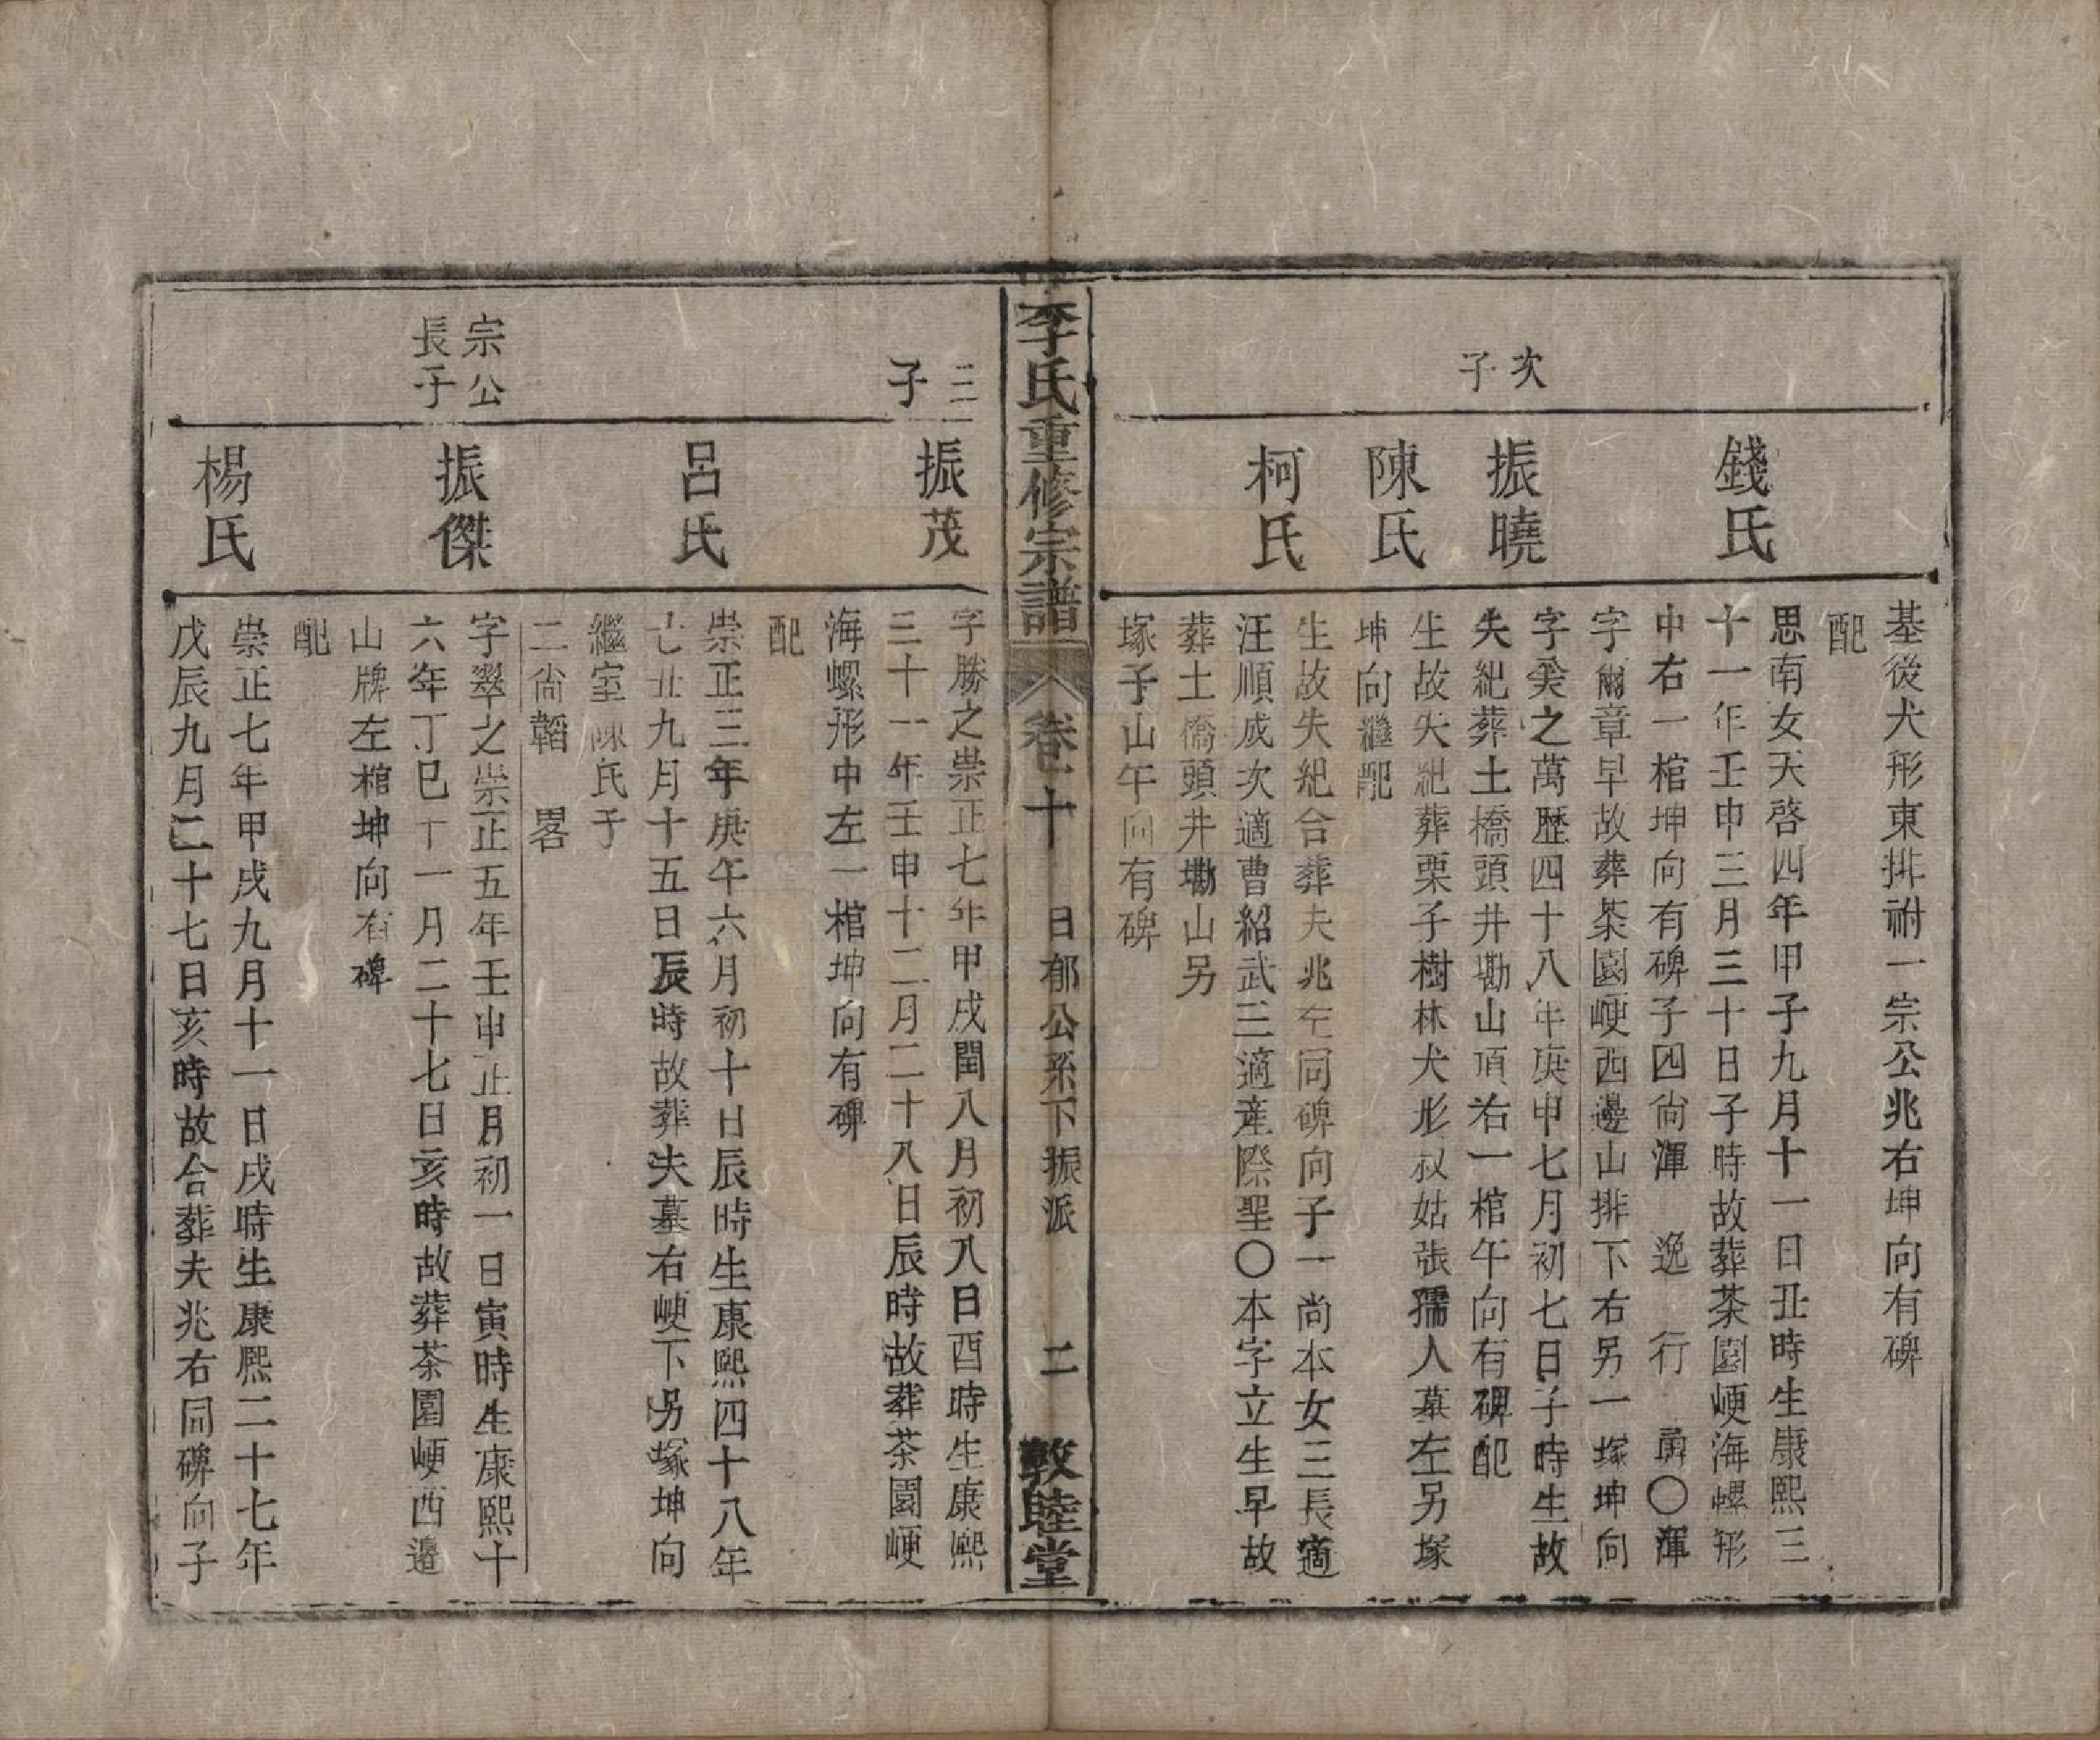 基後犬形東排祔一宗公兆右坤向有碑
配
錢氏
思南女天啓四年甲子九月十一日丑時生康熙三
十一年壬申三月三十日子時故葬茶園崾海螺形
中右一棺坤向有碑子四尙渾　逸　行　勇〇渾
字爾章早故葬茶園崾西邊山排下右另一塚坤向
次子
振曉
字癸之萬歷四十八年庚申七月初七日子時生故
失紀葬土橋頭井墈山頂右一棺午向有碑配
陳氏
生故失紀葬栗子樹林犬形叔姑張孺人墓左另塚
坤向繼配
柯氏
生故失紀合葬夫兆左同碑向子一尚本女三長適
汪順成次適曹紹武三適産際聖〇本字立生早故
葬土橋頭井墈山另
塚子山午向有碑
李氏重修宗譜
卷十
日郁公系下振派
二
敦睦堂
三子
振茂
字勝之崇正七年甲戌閏八月初八日酉時生康熙
三十一年壬申十二月二十八日辰時故葬茶園崾
海螺形中左一棺坤向有碑
配
呂氏
崇正三年庚午六月初十日辰時生康熙四十八年
七丑九月十五日辰時故葬夫墓右崾下另塚坤向
繼室陳氏子
二尙韜　畧
宗公長子
振傑
字翠之崇正五年壬申正月初一日寅時生康熙十
六年丁巳十一月二十七日亥時故葬茶園崾西邊
山牌左棺坤向有碑
配
楊氏
崇正七年甲戌九月十一日戌時生康熙二十七年
戊辰九月二十七日亥時故合葬夫兆右同碑向子